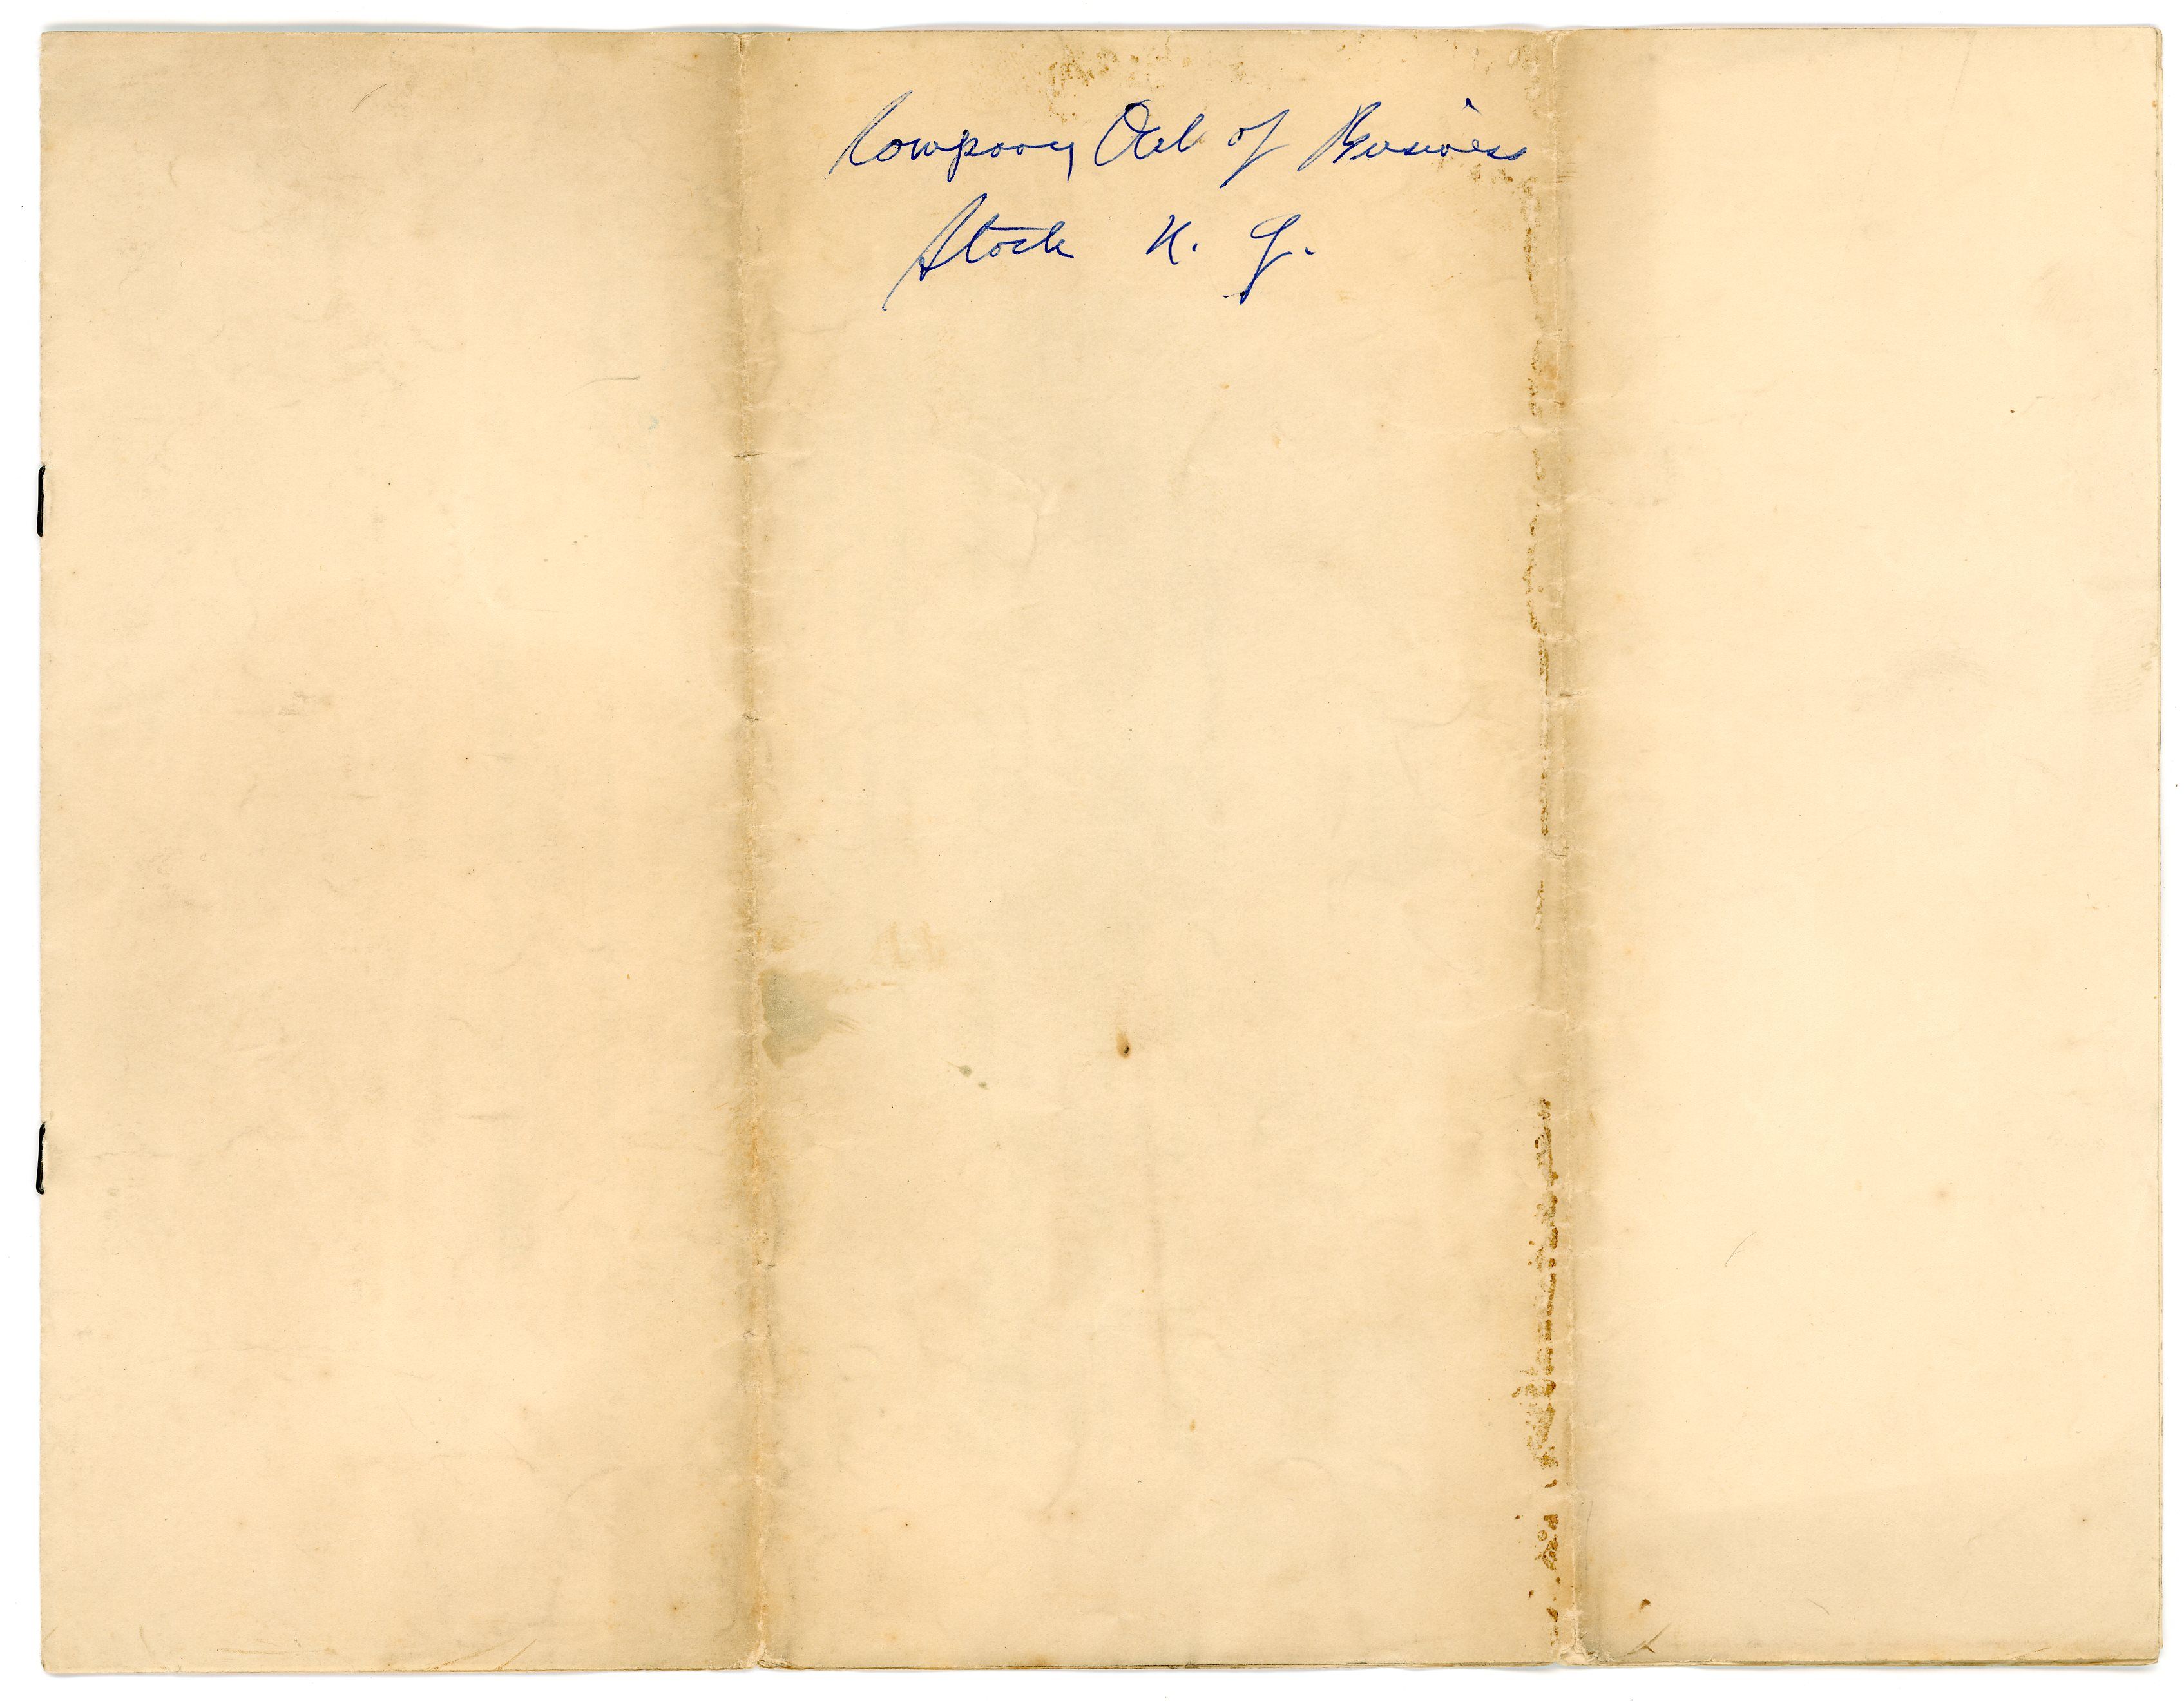 Company Out of Business
Stock N. G.